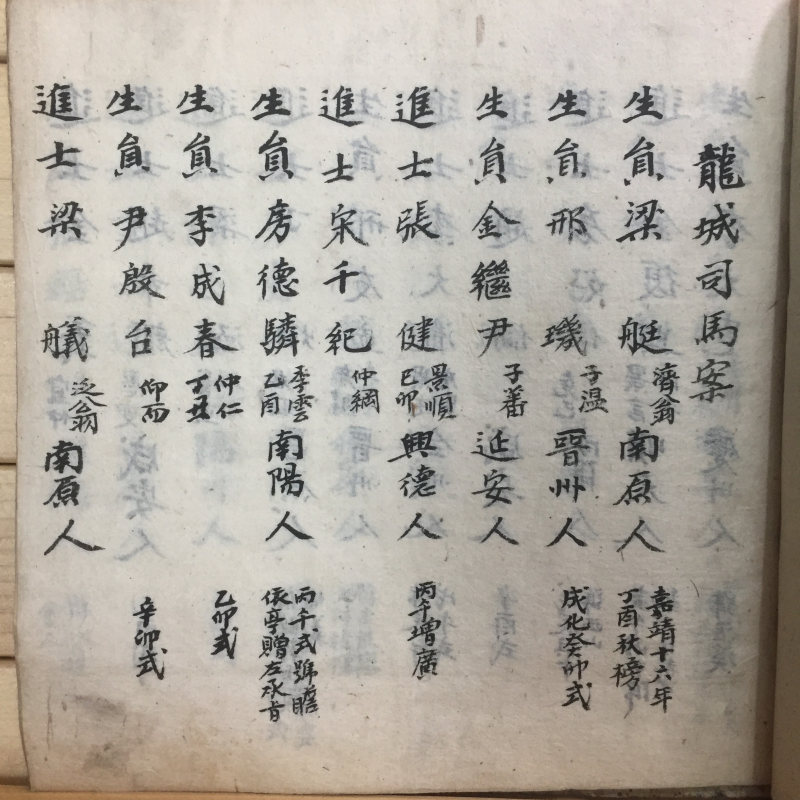 龍城司馬案
生員梁艇 濟翁 南原人 嘉靖十六年丁酉秋榜
生員邢璣 子温 晉州人 成化癸卯式
生員金繼尹 子蕃 延安人
進士張健 景順 己卯 興德人 丙午增廣
進士宋千紀 仲綱
生員房德驎 季雲 乙酉 南陽人 丙午式號瞻依亭贈左承旨
生員李成春 仲仁 丁丑 乙卯式
生員尹殷台 仰而 辛卯式
進士梁艤 泛翁 南原人